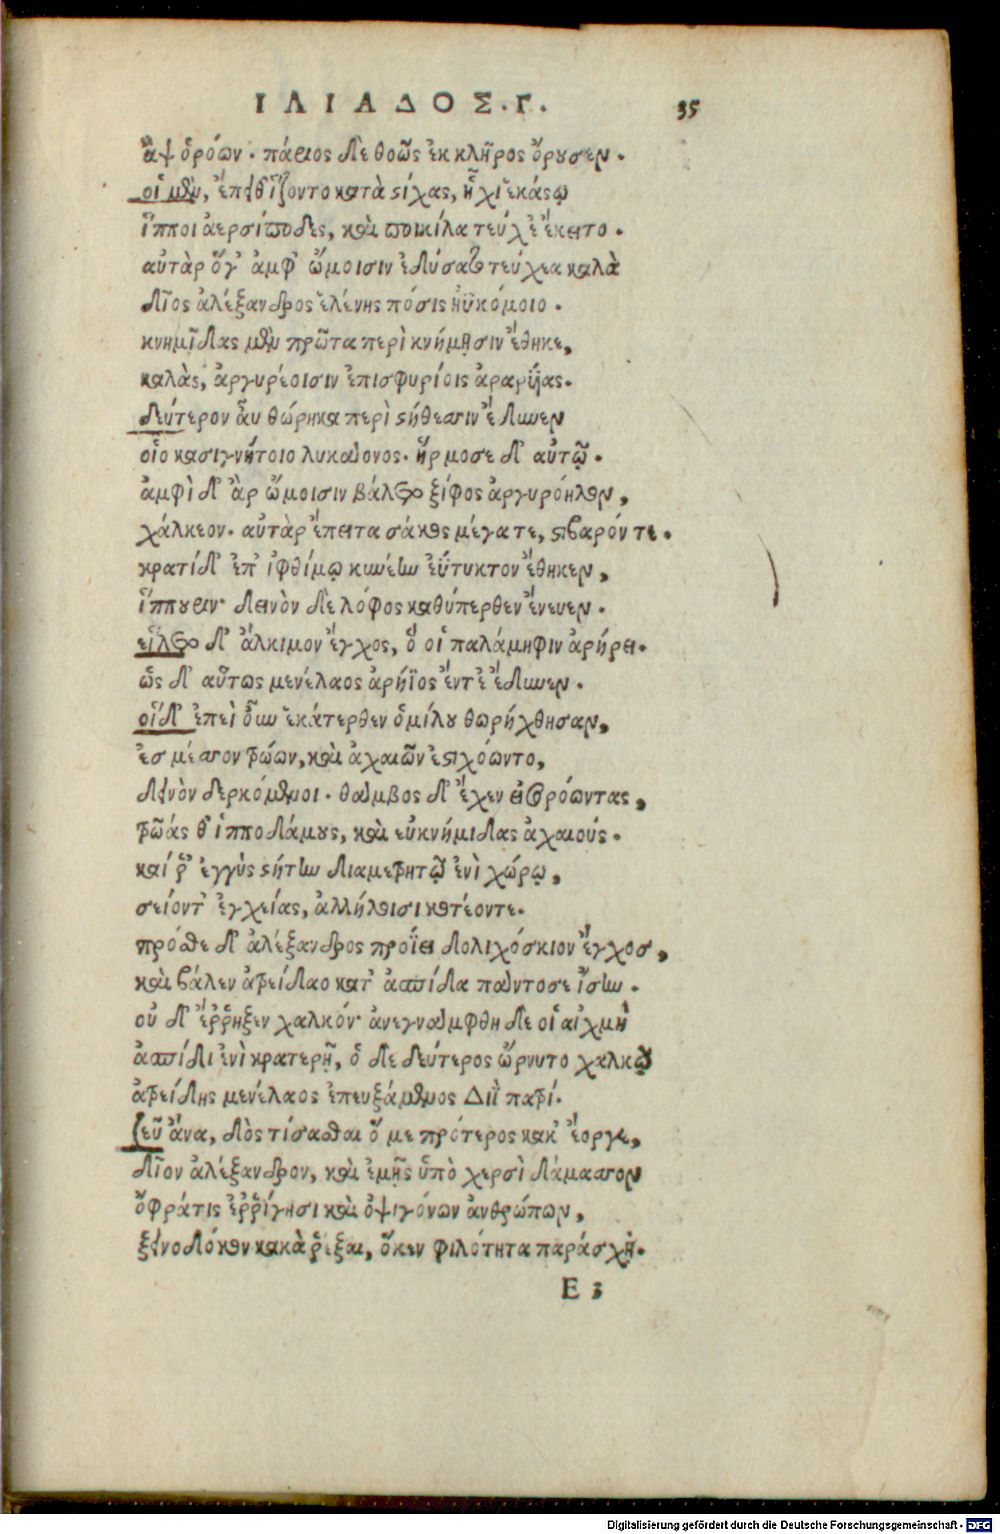 ΙΛΙΑΔΟΣ.Γ. 35
ἂψ ὁρόων· πάριος δὲ θοῶς ἐκ κλῆρος ὄρουσεν.
οἱ μὲν, ἔπειθ' ἵζοντο κατὰ στίχας, ἧχι ἑκάστῳ
ἵπποι ἀερσίποδες, καὶ ποικίλα τεύχε' ἔκειτο.
αὐτὰρ ὅγ' ἀμφ' ὤμοισιν ἐδύσατο τεύχεα καλὰ
δῖος ἀλέξανδρος ἑλένης πόσις ἠϋκόμοιο.
κνημῖδας μὲν πρῶτα περὶ κνήμησιν ἔθηκε,
καλὰς, ἀργυρέοισιν ἐπισφυρίοις ἀραρυίας.
δεύτερον ἂυ θώρηκα περὶ στήθεσσιν ἔδυνεν
οἷο κασιγνήτοιο λυκάονος· ἥρμοσε δ' αὐτῷ.
ἀμφὶ δ' ἂρ ὤμοισιν βάλετο ξίφος ἀργυρόηλον,
χάλκεον· αὐτὰρ ἔπειτα σάκος μέγα τε, στιβαρόν τε.
κρατὶ δ' ἐπ' ἰφθίμῳ κυνέην εὔτυκτον ἔθηκεν,
ἵππουριν· δεινὸν δὲ λόφος καθύπερθεν ἔνευεν.
εἵλετο δ' ἄλκιμον ἔγχος, ὅ οἱ παλάμηφιν ἀρήρει.
ὣς δ' αὔτως μενέλαος ἀρήϊος ἔντε' ἔδυνεν.
οἱ δ' ἐπεὶ οὖν ἑκάτερθεν ὁμίλου θωρήχθησαν,
ἐσ μέσσον τρώων, καὶ ἀχαιῶν ἐστιχόωντο,
δεινὸν δερκόμενοι· θάμβος δ' ἔχεν εἰσορόωντας,
τρῶάς θ' ἱπποδάμους, καὶ εὐκνήμιδας ἀχαιούς.
καί ῥ' ἐγγὺς στήτην διαμετρητῷ ἐνὶ χώρῳ,
σείοντ' ἐγχείας, ἀλλήλοισι κοτέοντε.
πρόσθε δ' ἀλέξανδρος προΐει δολιχόσκιον ἔγχοσ,
καὶ βάλεν ἀτρείδαο κατ' ἀσπίδα πάντοσε ἴσην.
οὐ δ' ἔῤῥηξεν χαλκόν· ἀνεγνάμφθη δέ οἱ αἰχμὴ
ἀσπίδι ἐνὶ κρατερῇ, ὁ δὲ δεύτερος ὤρνυτο χαλκῷ
ἀτρείδης μενέλαος ἐπευξάμενος Διῒ πατρί.
ζεῦ ἄνα, δὸς τίσασθαι ὅ με πρότερος κακ' ἔοργε,
δῖον ἀλέξανδρον, καὶ ἐμῇς ὑπὸ χερσὶ δάμασσον
ὄφρά τις ἐῤῥίγησι καὶ ὀψιγόνων ἀνθρώπων,
ξεινοδόκον κακὰ ῥέξαι, ὅκεν φιλότητα παράσχῃ.
E 3
Digitalisierung gefördert durch die Deutsche Forschungsgemeinschaft - DFG